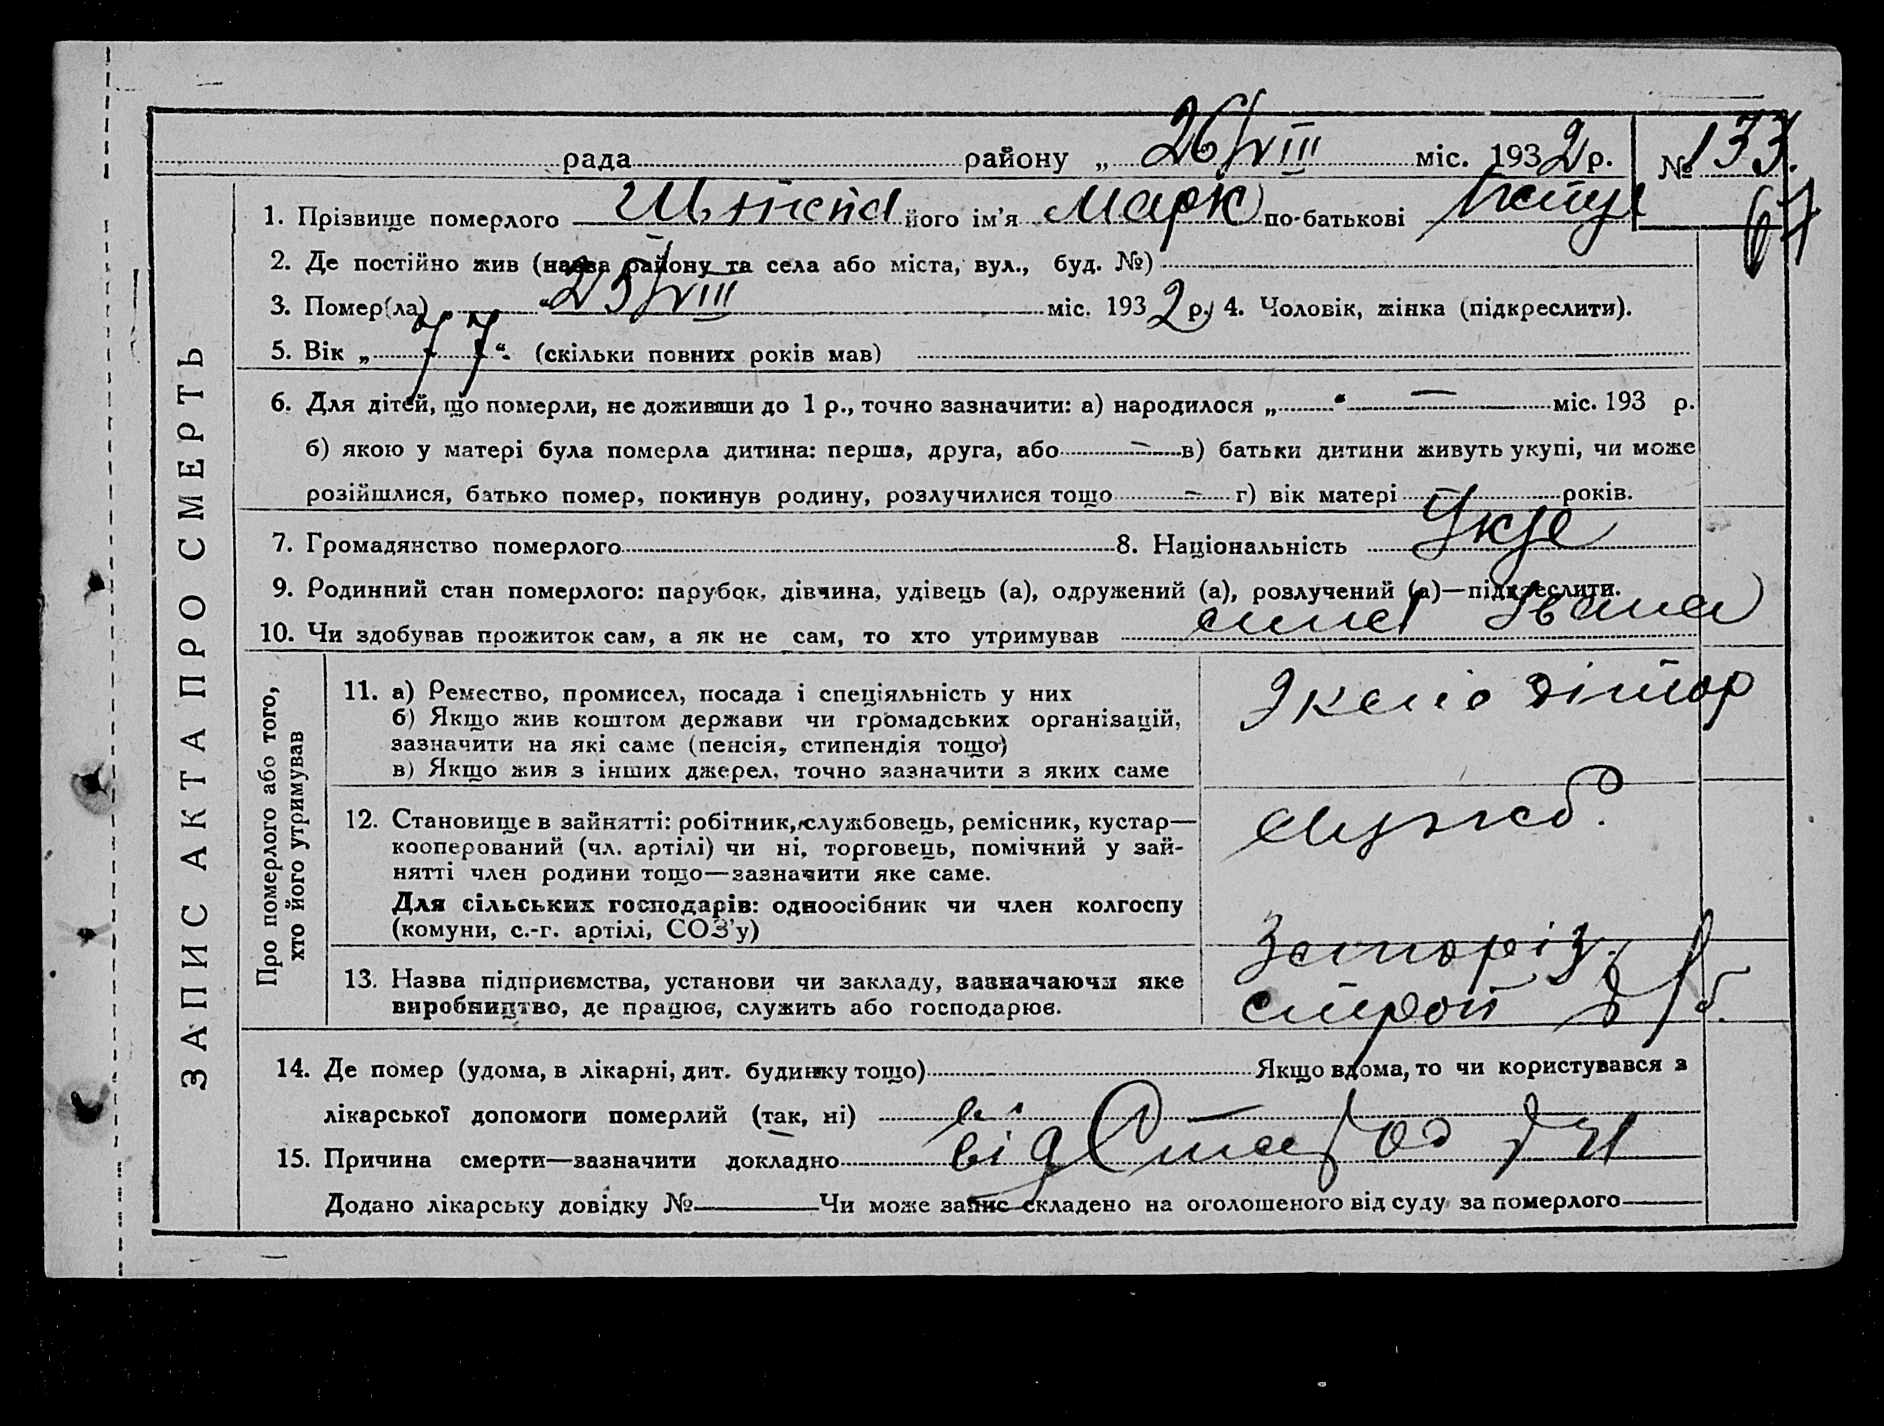 рада району „ 26/VIII міс. 1932 р. № 133.
67
1. Прізвище померлого його ім’я Марк по-батькові
2. Де постійно жив (назва району та села або міста, вул., буд. №)
3. Помер(ла) „ 25/VIII міс. 1932 р. 4. Чоловік, жінка (підкреслити).
5. Вік „ 77 “. (скільки повних років мав)
6. Для дітей, що померли, не доживши до 1 р., точно зазначити: а) народилося „ “ — міс. 193 р.
б) якою у матері була померла дитина: перша, друга, або — в) батьки дитини живуть укупі, чи може
розійшлися, батько помер, покинув родину, розлучилися тощо — г) вік матері — років.
7. Громадянство померлого 8. Національність Укр
9. Родинний стан померлого: парубок, дівчина, удівець (а), одружений (а), розлучений (а)—підкреслити.
10. Чи здобував прожиток сам, а як не сам, то хто утримував сина Івана
ЗАПИС АКТА ПРО СМЕРТЬ
Про померлого або того,
хто його утримував
11. а) Ремество, промисел, посада і спеціяльність у них
б) Якщо жив коштом держави чи громадських організацій,
зазначити на які саме (пенсія, стипендія тощо)
в) Якщо жив з інших джерел, точно зазначити з яких саме
Экспедітор
12. Становище в зайнятті: робітник, службовець, ремісник, кустар—
кооперований (чл. артілі) чи ні, торговець, помічний у зай-
нятті член родини тощо—зазначити яке саме.
Для сільських господарів: одноосібник чи член колгоспу
(комуни, с.-г. артілі, СОЗ’у)
служб.
13. Назва підприємства, установи чи закладу, зазначаючи яке
виробництво, де працює, служить або господарює.
Запоріз.
строй
14. Де помер (удома, в лікарні, дит. будинку тощо) Якщо вдома, то чи користувався з
лікарської допомоги померлий (так, ні)
15. Причина смерти—зазначити докладно від
Додано лікарську довідку № Чи може запис складено на оголошеного від суду за померлого